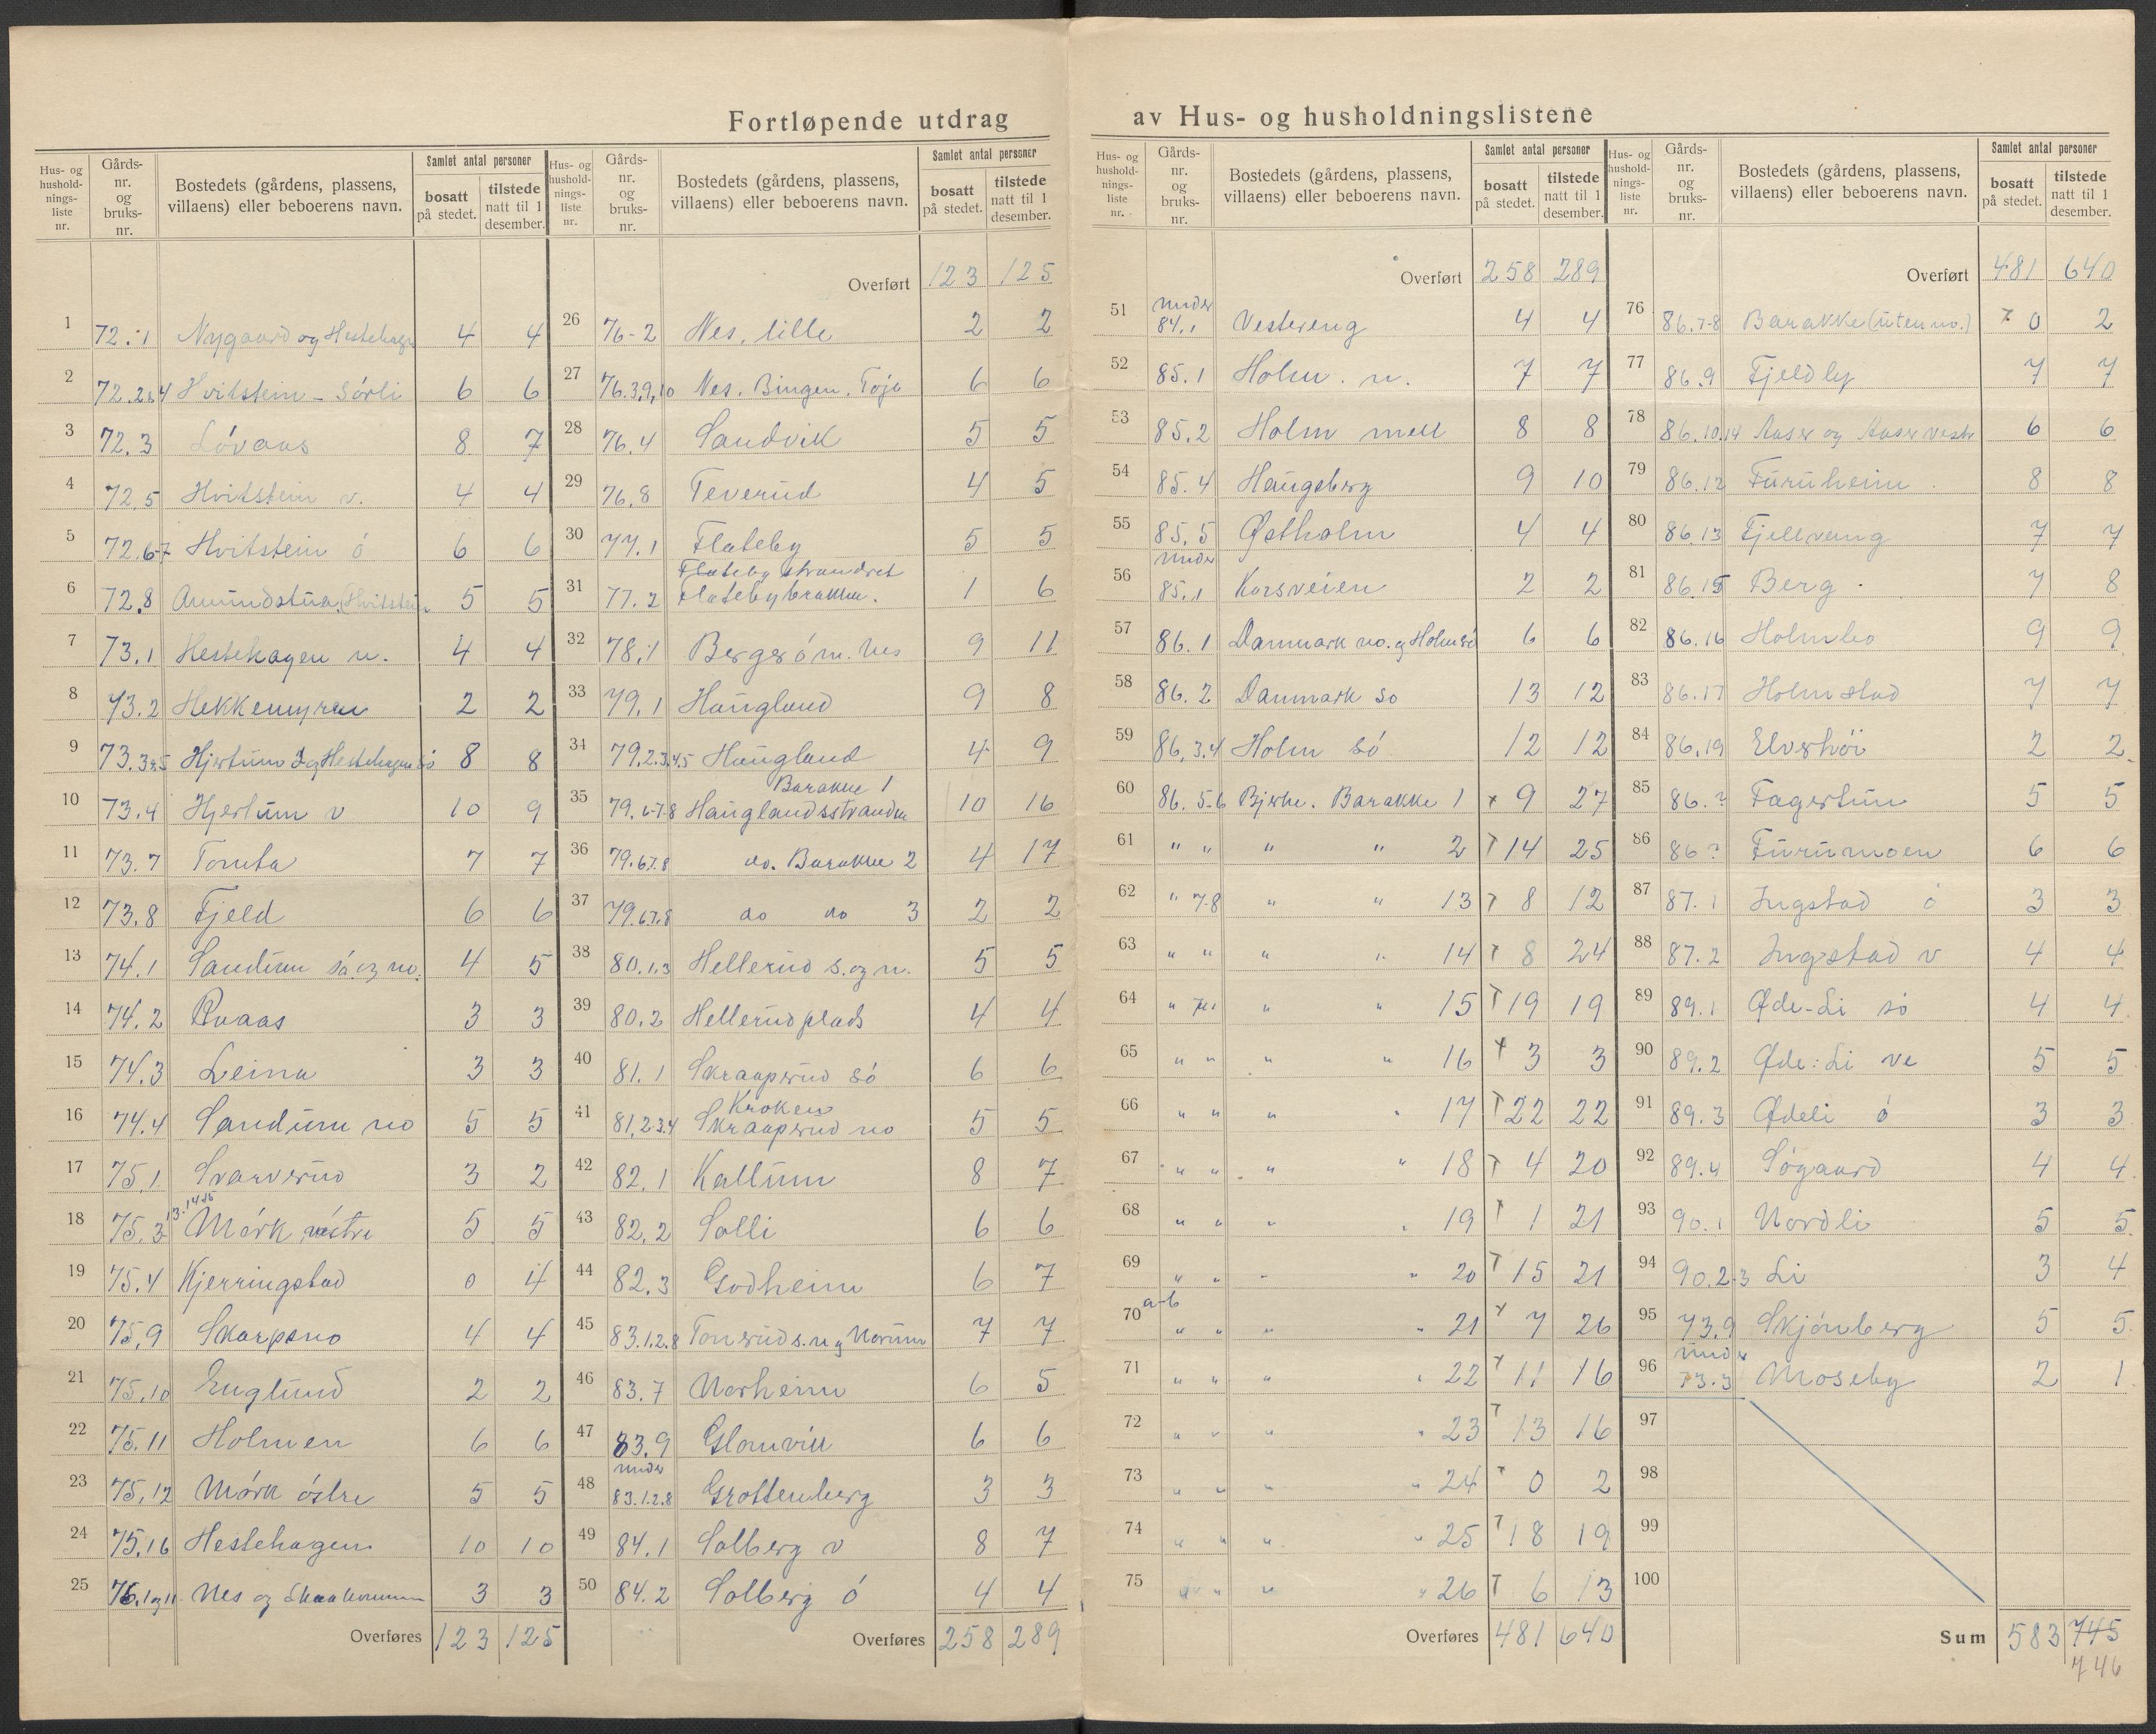 Fortløpende utdrag av Hus- og husholdningslistene
Hus- og hushold-nings-liste nr. | Gårds-nr. og bruks-nr. | Bostedets (gårdens, plassens, villaens) eller beboerens navn. | Samlet antal personer bosatt på stedet. | tilstede natt til 1 desember.
1 72.1 Nygaard og Hestehagen 4 4
2 72.2&4 Hvitstein - Sórli 6 6
3 72.3 Lóvaas 8 7
4 72.5 Hvitstein v. 4 4
5 72.6-7 Hvitstein ó 6 6
6 72.8 Amundstua, Hvitstein 5 5
7 73.1 Hestehagen n. 4 4
8 73.2 Hekkemyren 2 2
9 73.3&5 Hjertum ó og Hestehagen só 8 8
10 73.4 Hjertum v 10 9
11 73.7 Tomta 7 7
12 73.8 Fjeld 6 6
13 74.1 Sandum só. og no. 4 5
14 74.2 Braas 3 3
15 74.3 Leina 3 3
16 74.4 Sandum no 5 5
17 75.1 Svarverud 3 2
18 75.3 13.14.15 Mórk, vestre 5 5
19 75.4 Kjerringstad 0 4
20 75.9 Skarpsno 4 4
21 75.10 Englund 2 2
22 75.11 Holmen 6 6
23 75.12 Mórk óstre 5 5
24 75.16 Hestehagen 10 10
25 76.1 og 11 Nes og 3 3
Overføres 123 125
Hus- og hushold-nings-liste nr. | Gårds-nr. og bruks-nr. | Bostedets (gårdens, plassens, villaens) eller beboerens navn. | Samlet antal personer bosatt på stedet. | tilstede natt til 1 desember.
Overført 123 125
26 76-2 Nes, lille 2 2
27 76.3,9,10 Nes. Bingen. Toje 6 6
28 76.4 Sandvik 5 5
29 76.8 Teverud 4 5
30 77.1 Flateby 5 5
31 77.2 Flateby strandret Flateby brakke. 1 6
32 78.1 Berger óm. Nes 9 11
33 79.1 Haugland 9 8
34 79.2.3.4.5 Haugland 4 9
35 79.6-7-8 Hauglandsstranden Barakke 1 10 16
36 79.6.7.8 do. Barakke 2 4 17
37 79.6.7.8 do do 3 2 2
38 80.1.3 Hellerud s. og n. 5 5
39 80.2 Hellerudplads 4 4
40 81.1 Skraaperud só 6 6
41 81,2.3.4 Kroken Skraaperud no 5 5
42 82.1 Kallum 8 7
43 82.2 Solli 6 6
44 82.3 Godheim 6 7
45 83.1.2.8 Tonerud s. n og Norum 7 7
46 83.7 Norheim 6 5
47 83.9 Glomvik 6 6
48 under 83.1.2.8 Grottenberg 3 3
49 84.1 Solberg v 8 7
50 84.2 Solberg ó 4 4
Overføres 258 289
Hus- og hushold-nings-liste nr. | Gårds-nr. og bruks-nr. | Bostedets (gårdens, plassens, villaens) eller beboerens navn. | Samlet antal personer bosatt på stedet. | tilstede natt til 1 desember.
Overført 258 289
51 under 84.1 Vestereng 4 4
52 85.1 Holm. n. 7 7
53 85.2 Holm mell 8 8
54 85.4 Haugsberg 9 10
55 85.5 Østholm 4 4
56 under 85.1 Korsveien 2 2
57 86.1 Danmark no. og Holm só 6 6
58 86.2 Danmark so 13 12
59 86.3.4 Holm só 12 12
60 86.5-6 Bjerke. Barakke 1 x 9 27
61 " " " " 2 14 25
62 " 7-8 " " 13 8 12
63 " " " " 14 8 24
64 " " " 15 19 19
65 " " " " 16 3 3
66 " " " " 17 22 22
67 " " " " 18 4 20
68 " " " " 19 1 21
69 " " " " 20 15 21
70 a-b " " " " 21 7 26
71 " " " " 22 11 16
72 " " " " 23 13 16
73 " " " " 24 0 2
74 " " " " 25 18 19
75 " " " " 26 6 13
Overføres 481 640
Hus- og hushold-nings-liste nr. | Gårds-nr. og bruks-nr. | Bostedets (gårdens, plassens, villaens) eller beboerens navn. | Samlet antal personer bosatt på stedet. | tilstede natt til 1 desember.
Overført 481 640
76 86.7-8 Barakke (uten no.) 0 2
77 86.9 Fjeldly 7 7
78 86.10.14 Aaser og Aaser vestr 6 6
79 86.12 Furuheim 8 8
80 86.13 Fjellvang 7 7
81 86.15 Berg 7 8
82 86.16 Holmbo 9 9
83 86.17 Holmstad 7 7
84 86.19 Elverhói 2 2
85 86.? Fagertun 5 5
86 86? Furumoen 6 6
87 87.1 Ingstad ó 3 3
88 87.2 Ingstad v 4 4
89 89.1 Øde-Li só 4 4
90 89.2 Øde-Li ve 5 5
91 89.3 Ødeli ó 3 3
92 89.4 Sógaard 4 4
93 90.1 Nordli 5 5
94 90.2-3 Li 3 4
95 73.9 Skjónberg 5 5
96 under 73.3 Moseby 2 1
97
98
99
100
Sum 583 745
746